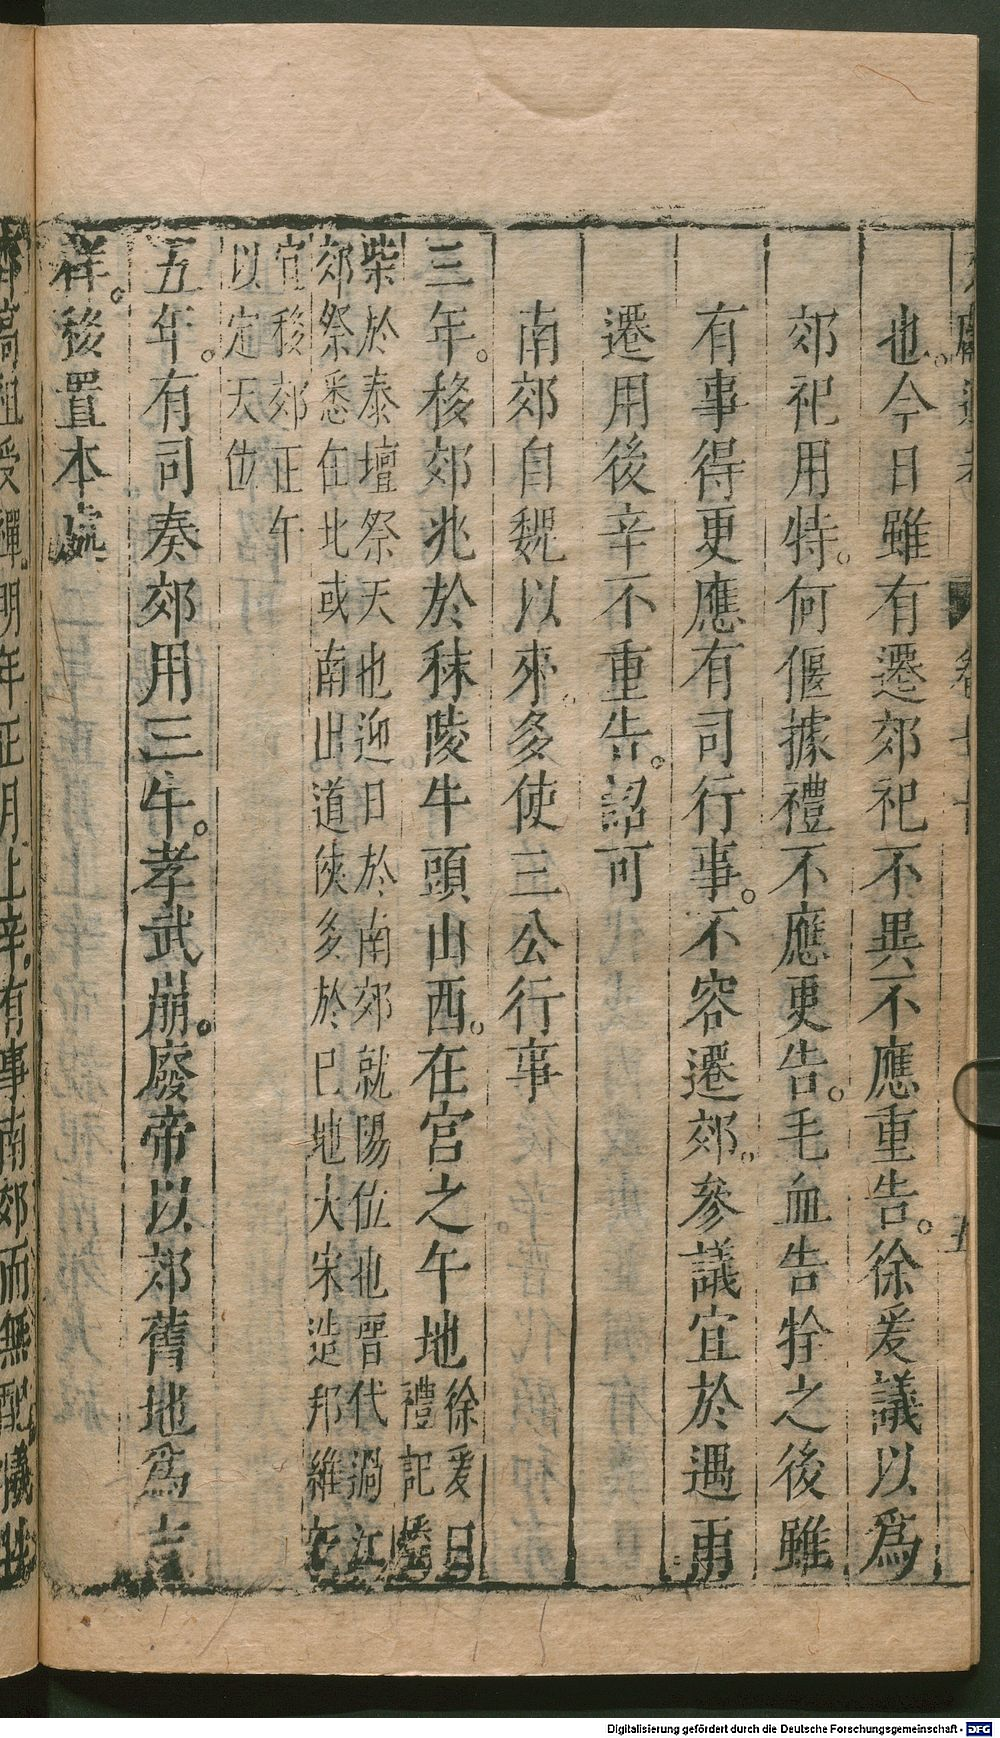 也。今日雖有遷郊祀不異不應重告。徐爰議以爲
郊祀用特。何偃據禮不應更告。毛血告牷之後雖
有事得更應有司行事。不容遷郊。參議宜於遇雨
遷用後辛不重告。詔可
南郊自魏以來多使三公行事
三年。移郊兆於秣陵牛頭山西。在宮之午地
徐爰曰
禮記燔
柴於泰壇祭天也迎日於南郊就陽位也晉代過江
郊祭悉在北或南出道俠多於巳地大宋造邦維
宜移郊正午
以定天位
五年。有司奏郊用三牛。孝武崩。廢帝以郊舊地爲吉
祥。移置本處
齊高祖受禪。明年正月上辛。有事南郊而無配犧牲
Digitalisierung gefördert durch die Deutsche Forschungsgemeinschaft - DFG